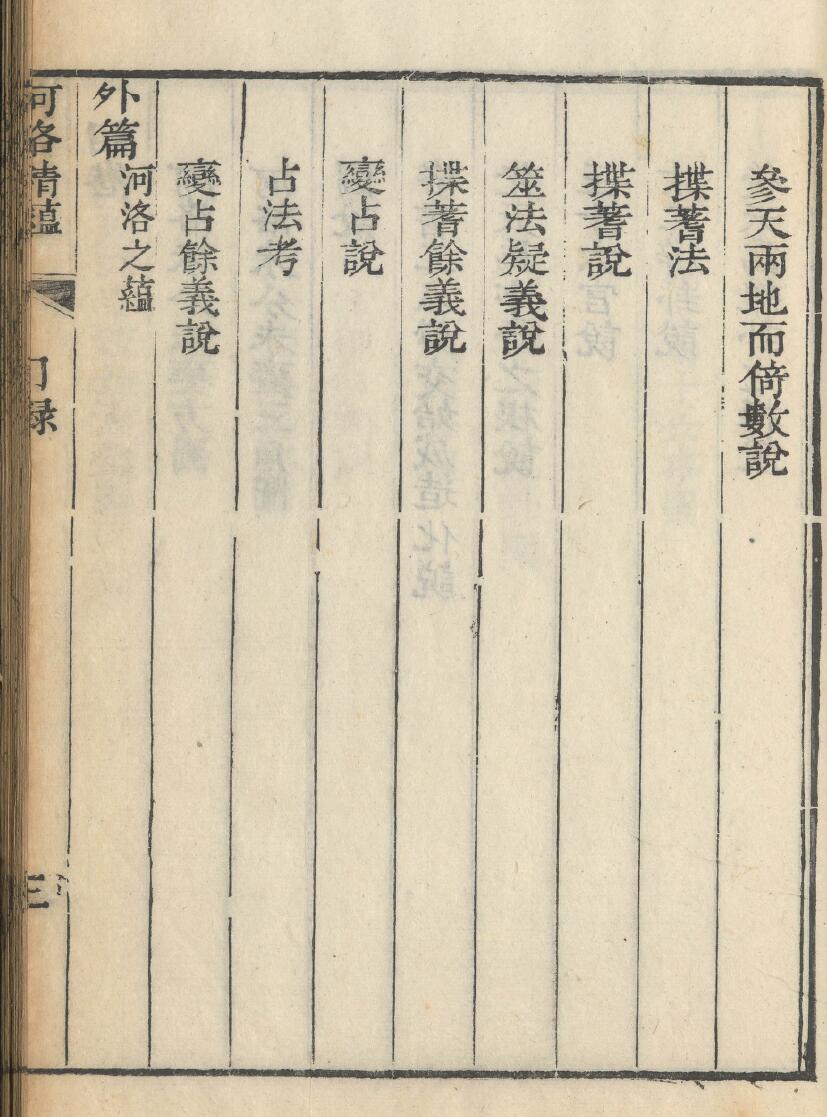 參天兩地而倚數說
揲蓍法
揲蓍說
筮法疑義說
揲蓍餘義說
變占說
占法考
變占餘義說
外篇 河洛之蘊
河洛精蘊 目錄 三